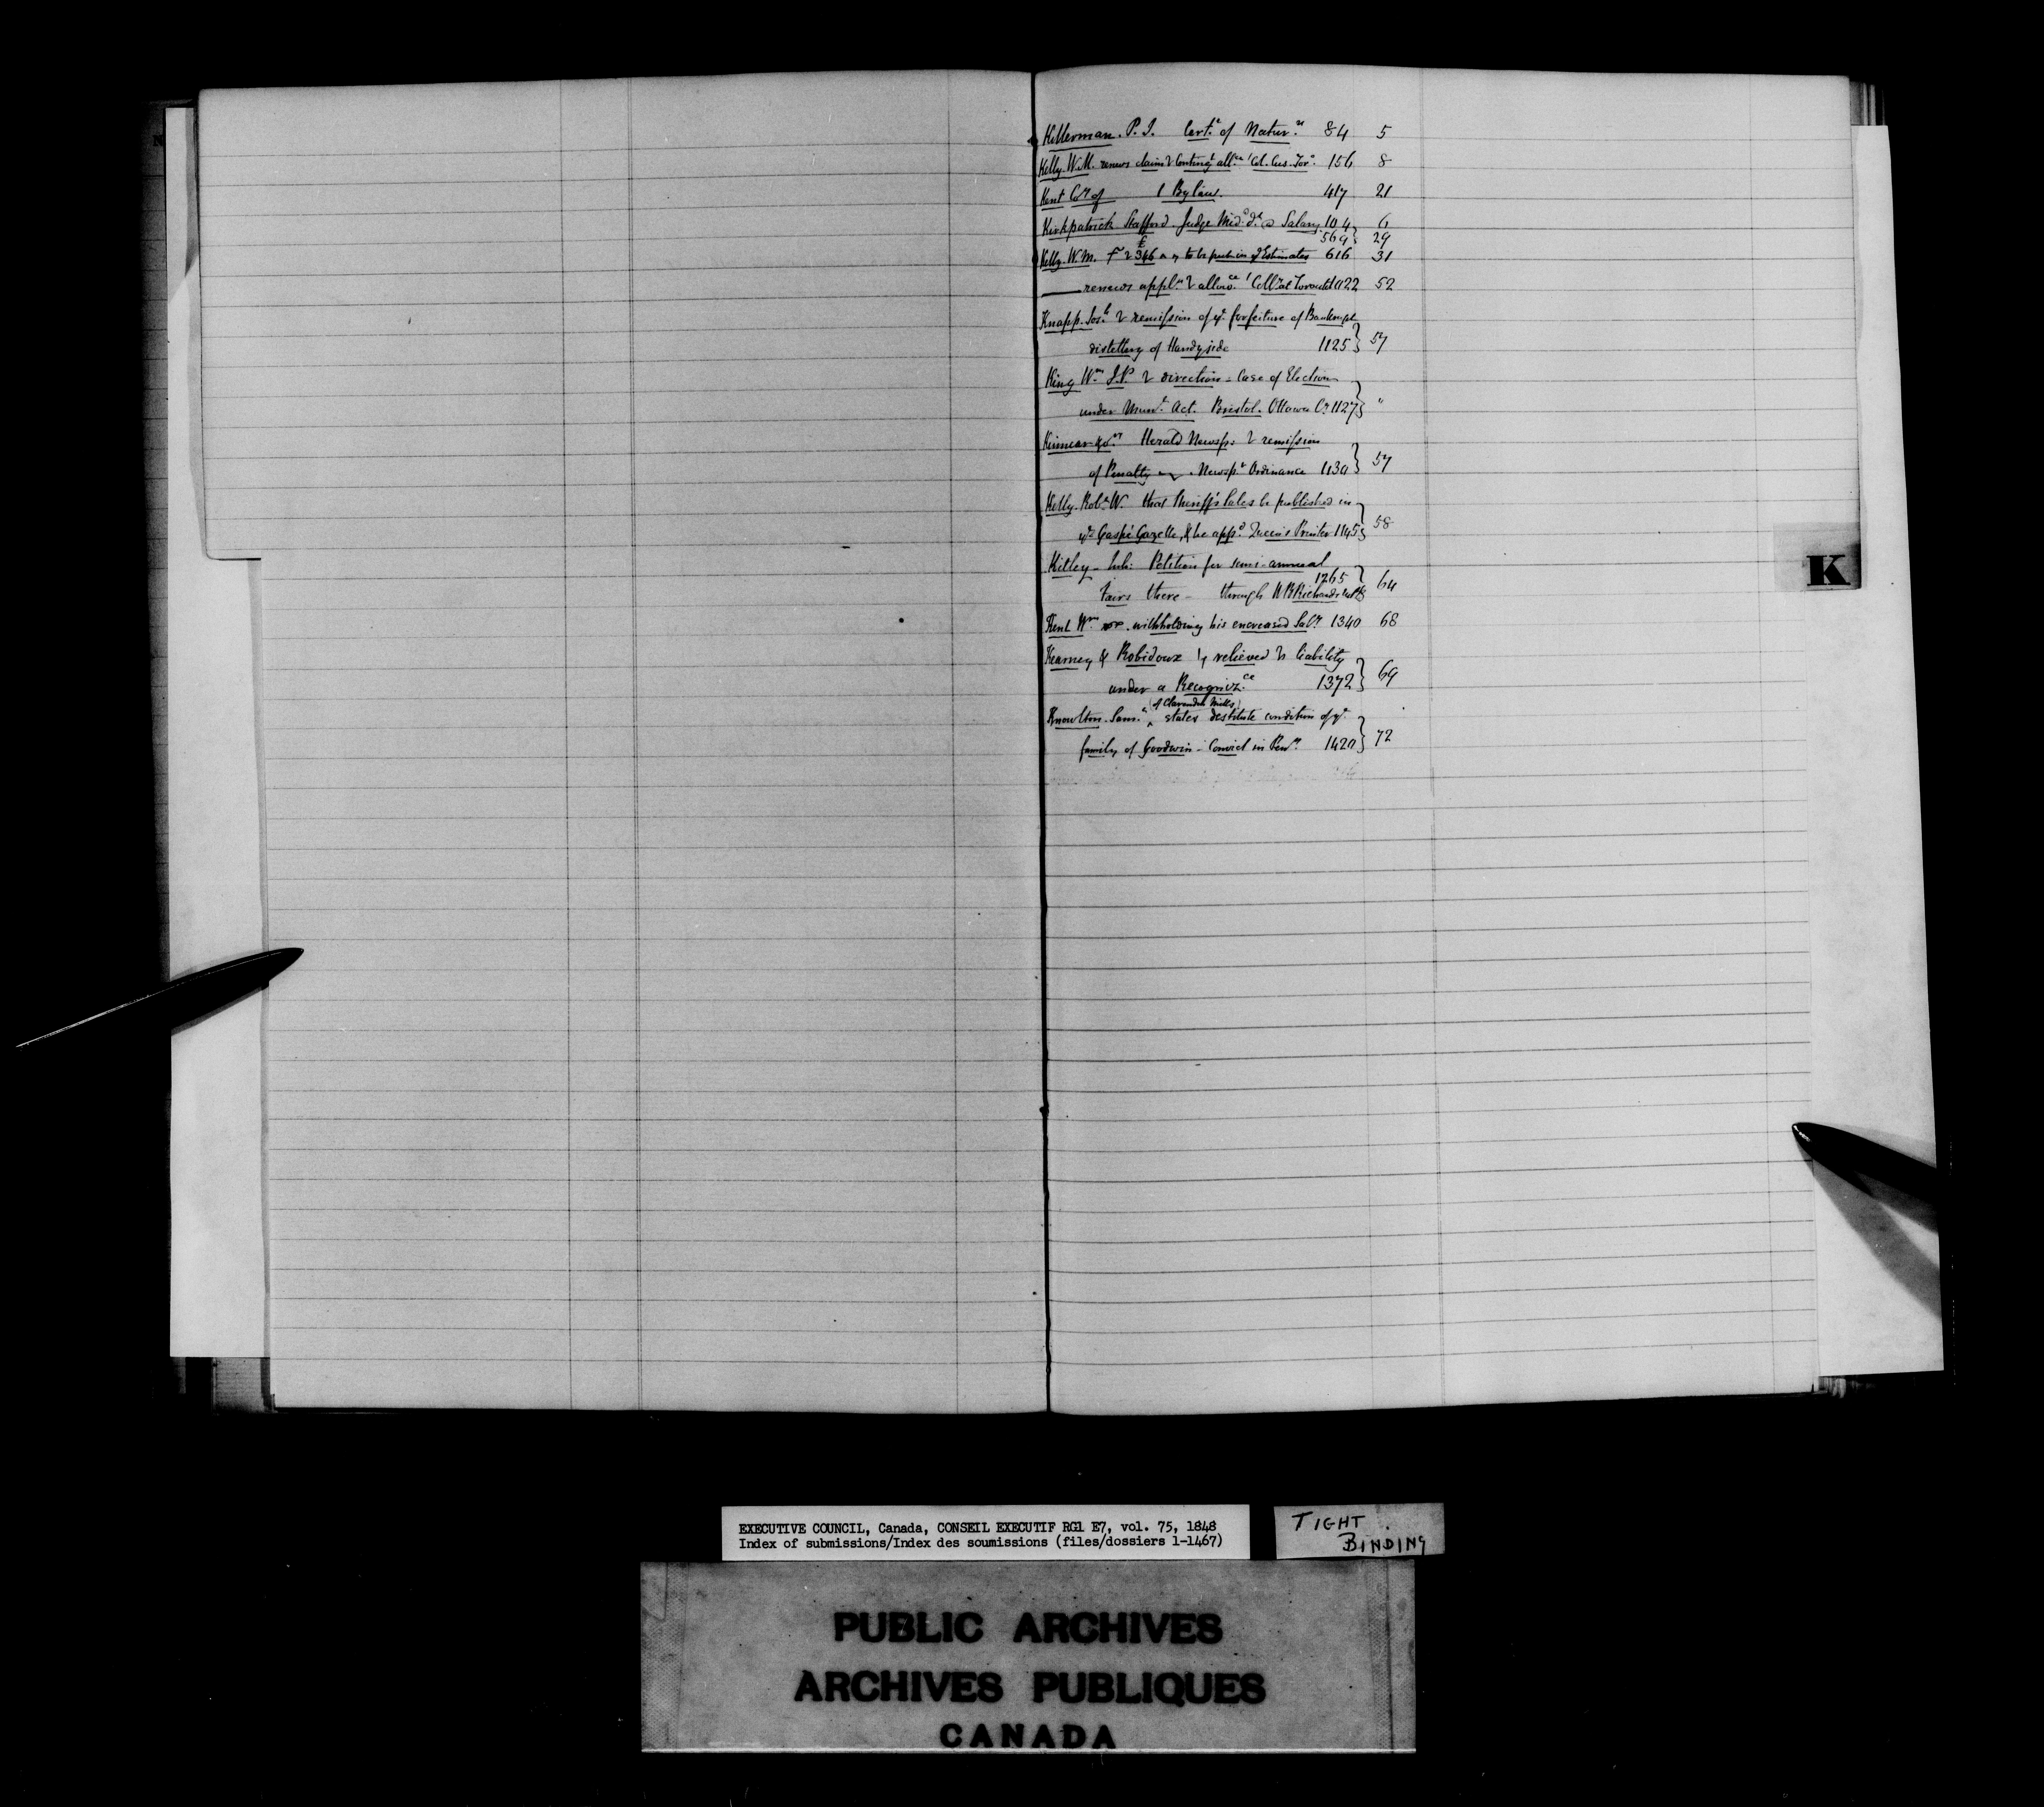 Killerman. P. J. Certe of Naturn 84 5
Kelly. W. M. renews claim & Contingt allce Col. Cus. Toro. 156 8
Kent Coy of 1 By law. 417 21
Kirkpatrick Stafford. Judge Mid. Salary 104 6
569 29
Kelly. W. M. £346 to be put in Estimates 616 31
—— renews appln allowce Collr at Toronto 1022 52
Knapp. Josh remission of ye forfeiture of Bankrupt
distillery of Handyside 1125 57
King Wm J.P. direction - Case of Election
under Munl. Act. Bristol. Ottawa Cy 1127 "
Kinnear & Herald Newsp. remission
of Penalty Newspr Ordinance 1130 57
Kelly. Robt W. that Sheriff's Sales be published in
ye Gaspé Gazette, & he appd. Queen's Printer 1145 58
Kitley - Inh: Petition for semi-annual
1265
Fairs there - through W B Richards 64
Kent Wm withholding his encreased Saly 1340 68
Kearney & Robidoux relieved liability
under a Recognizce 1372 69
(of Clarendon Mills)
Knowlton. Saml. states destitute condition of ye
family of Goodwin - Convict in Peny. 1420 72
K
EXECUTIVE COUNCIL, Canada, CONSEIL EXECUTIF RG1 E7, vol. 75, 1848
Index of submissions/Index des soumissions (files/dossiers 1-1467)
TIGHT
BINDING
PUBLIC ARCHIVES
ARCHIVES PUBLIQUES
CANADA